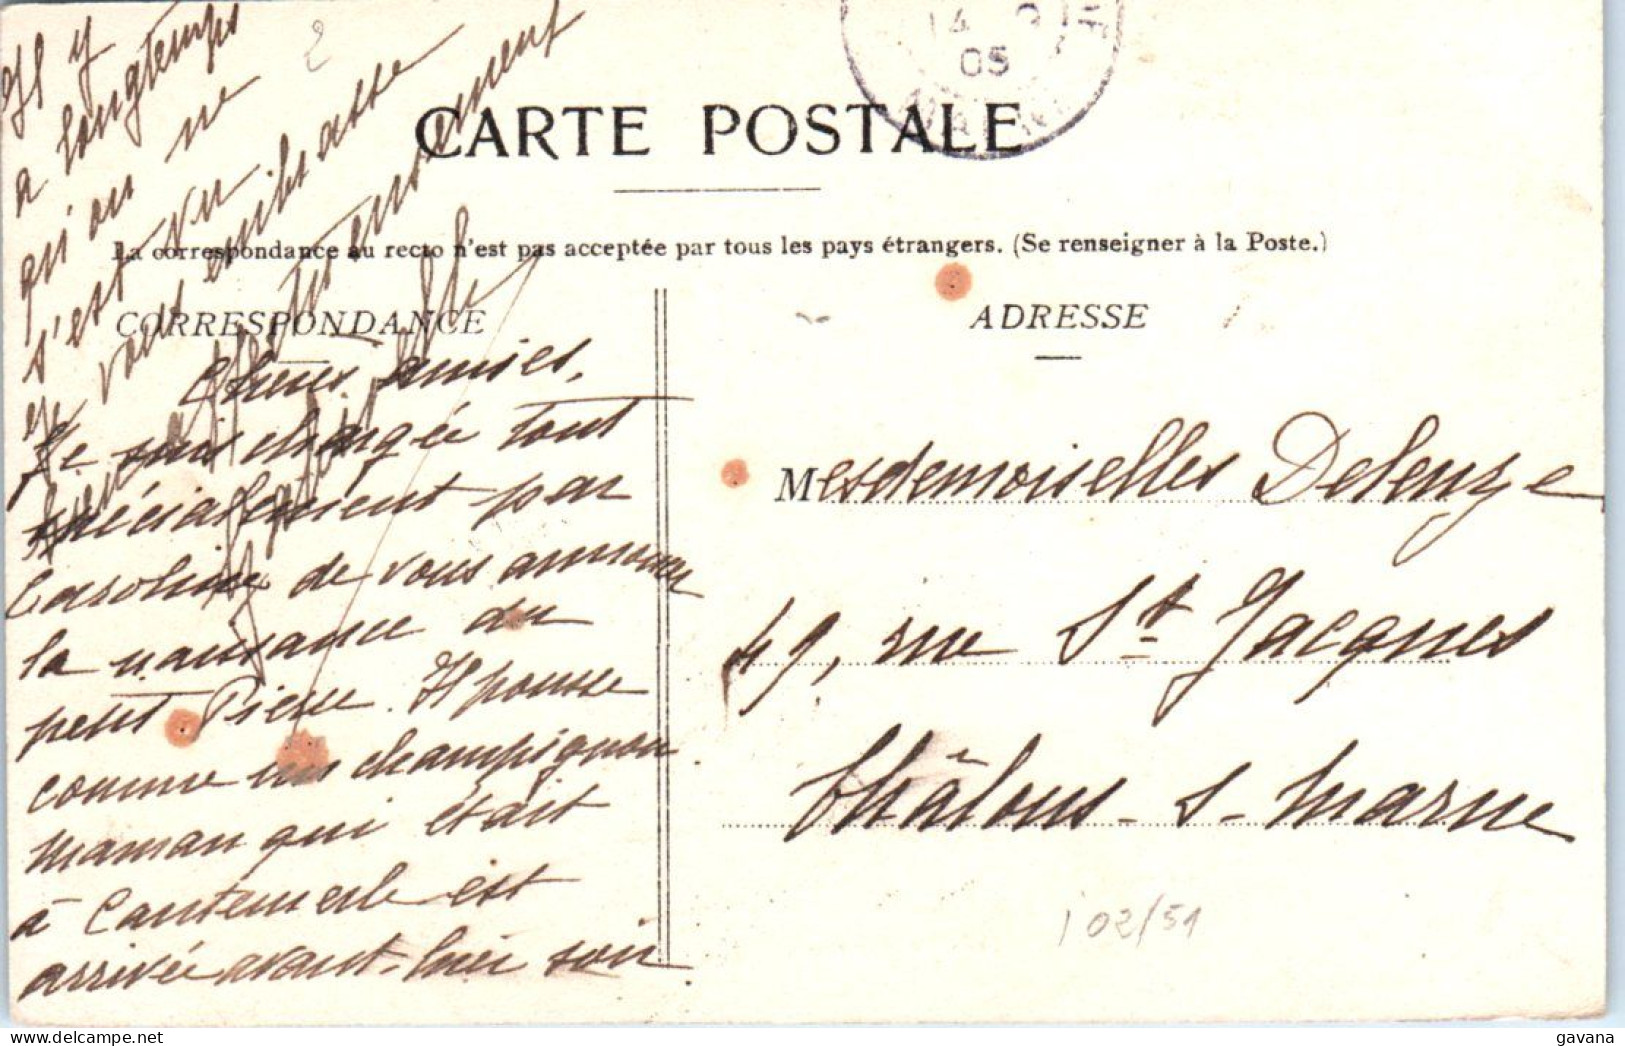 14
05
MARNE
CARTE POSTALE
La correspondance au recto n'est pas acceptée par tous les pays étrangers. (Se renseigner à la Poste.)
CORRESPONDANCE
ADRESSE
Chères amies,
Je suis chargée tout
spécialement par
Caroline de vous annoncer
la naissance du
petit Pierre. Il pousse
comme un champignon
maman qui était
à Cantemerle est
arrivée avant-hier soir
Il y
a longtemps
qu'on ne
s'est vu
Je vous embrasse
bien affectueusement
Mesdemoiselles Deleuze
49, rue St Jacques
Châlons-s-Marne
102/51
2
gavana